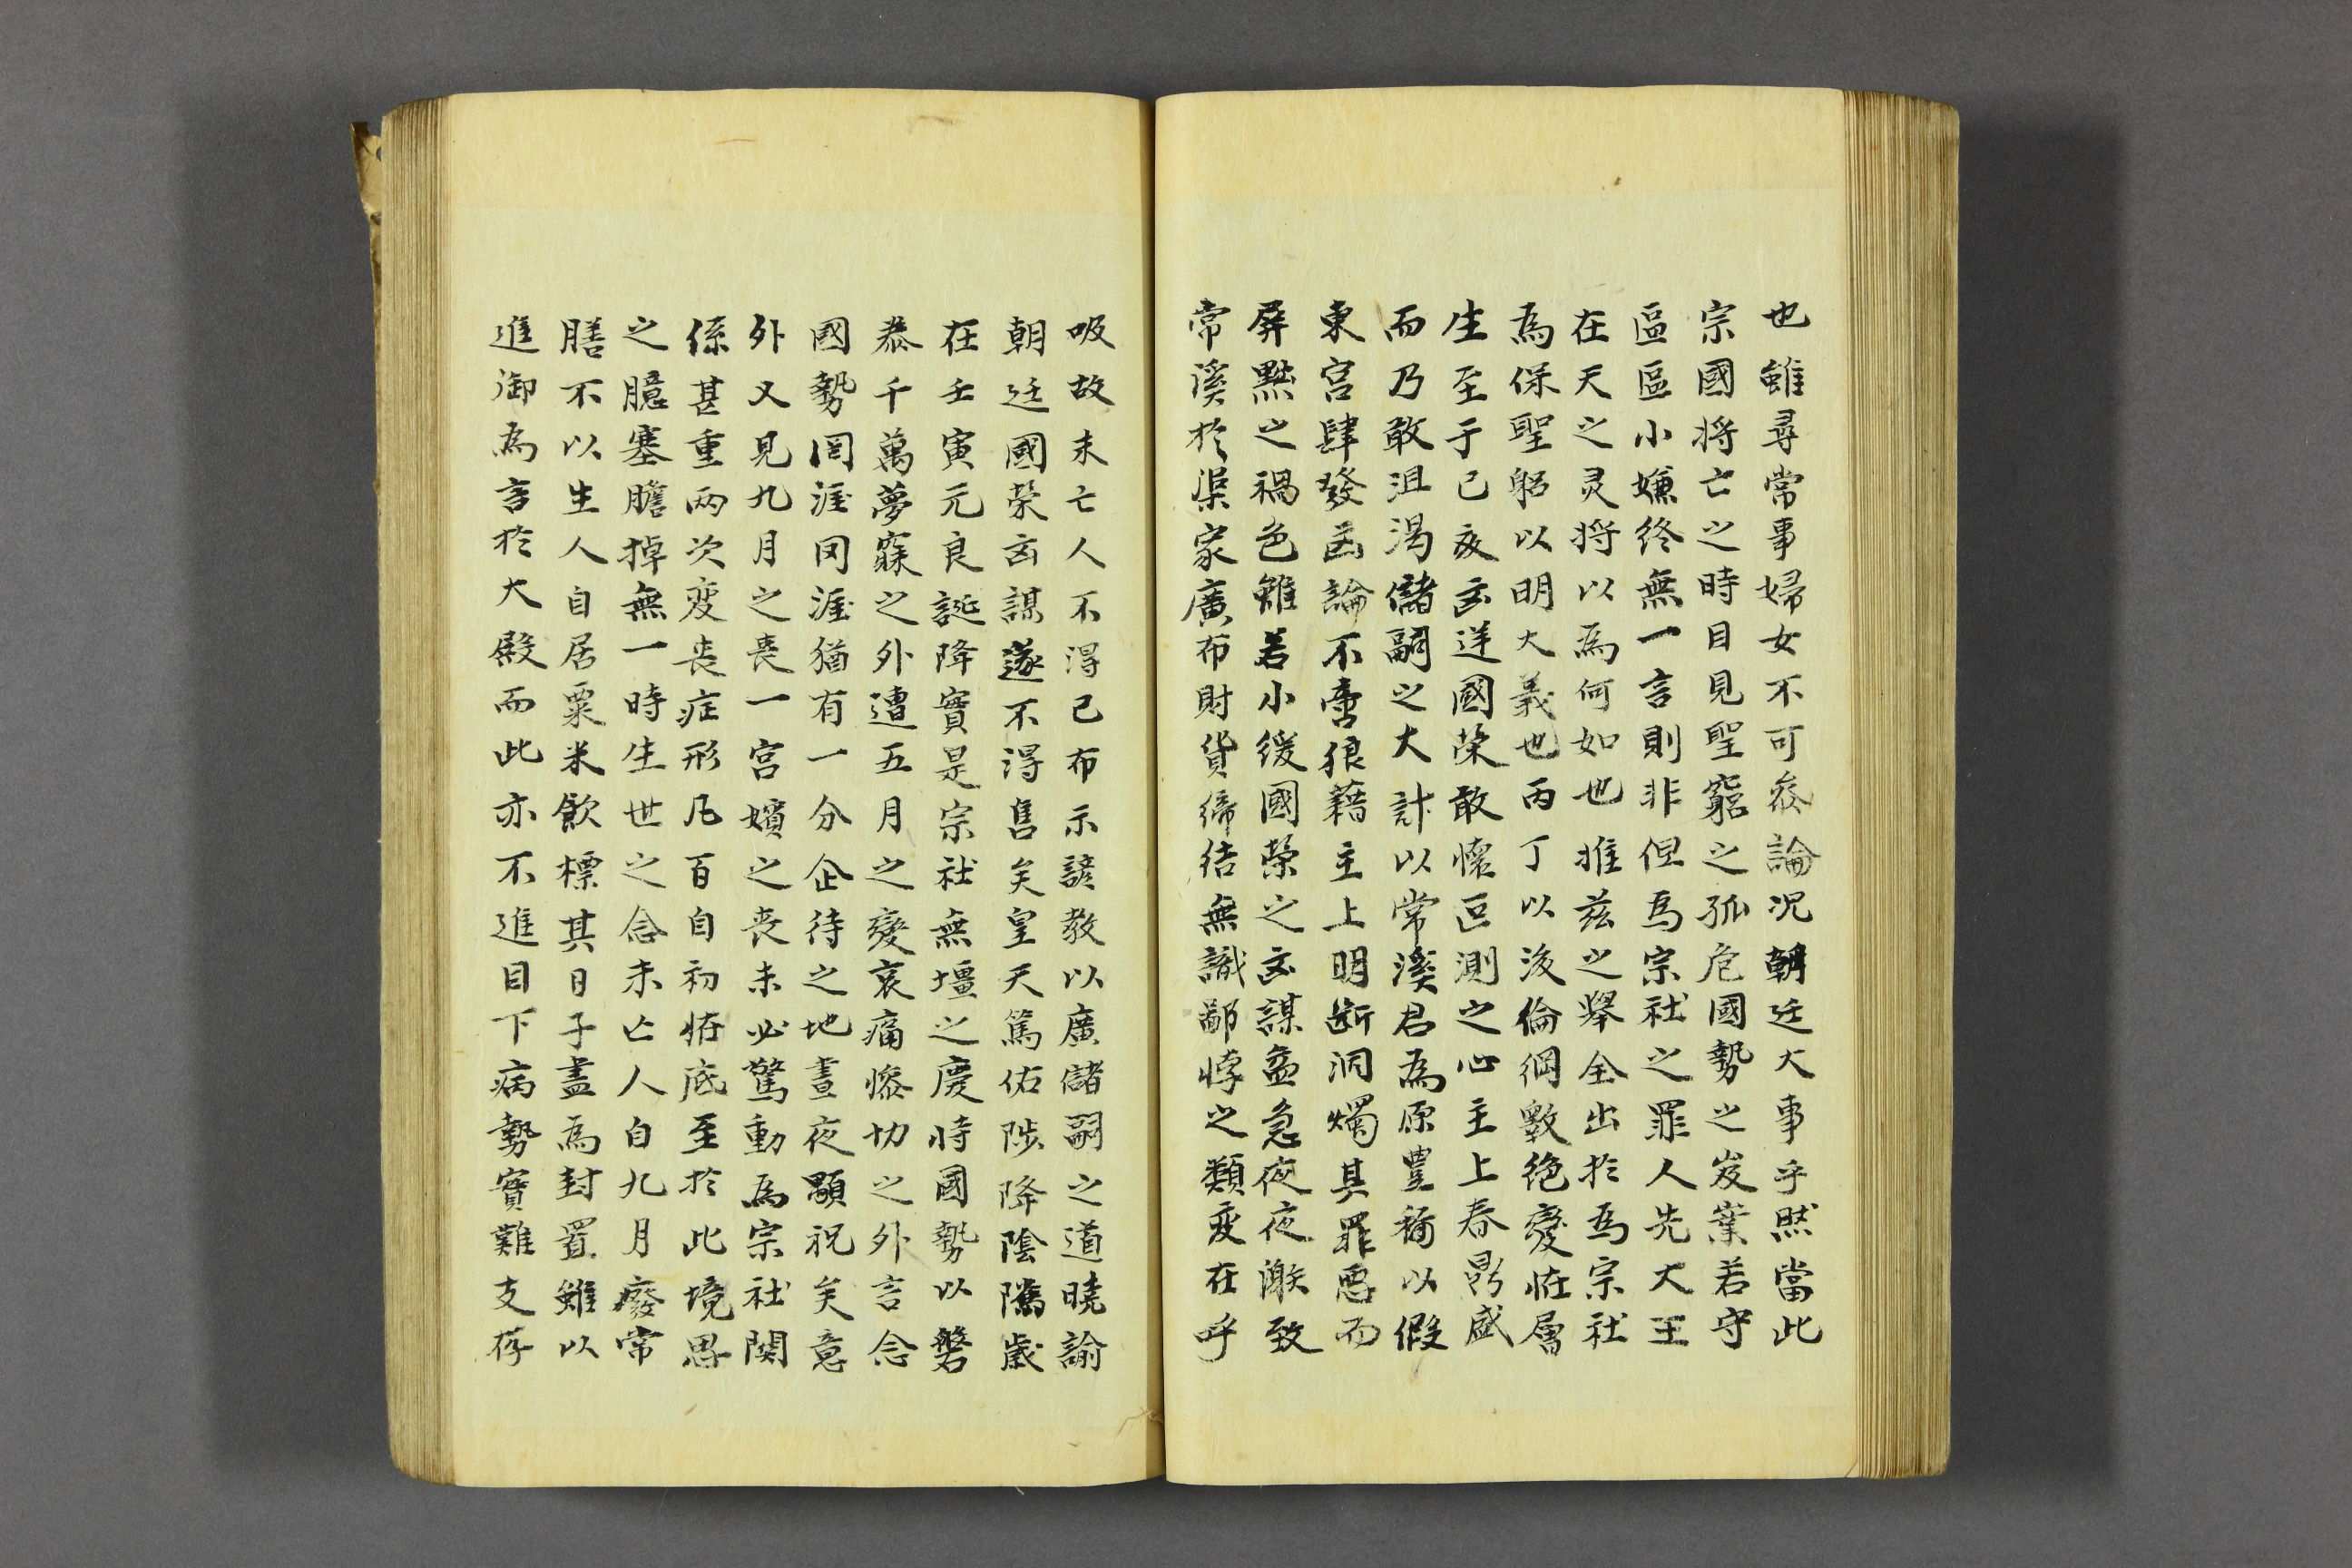 也雖尋常事婦女不可叅論况朝廷大事乎然當此
宗國將亡之時目見聖躬之孤危國勢之岌業若守
區區小嫌終無一言則非但爲宗社之罪人先大王
在天之灵將以爲何如也推茲之擧全出扵爲宗社
爲保聖躬以明大義也丙丁以後倫綱斁絶變恠層
生至于己亥凶逆國榮敢懷叵測之心主上春鼎盛
而乃敢沮遏儲嗣之大計以常溪君爲原豊稱以假
東宮肆發凶論不啻狼藉主上明断洞燭其罪惡而
屏黜之禍色雖若小緩國榮之凶謀益急夜夜漱致
常溪扵渠家廣布財貨締结無識鄙悖之類変在呼
吸故未亡人不淂已布示諺教以廣儲嗣之道曉諭
朝廷國榮凶謀遂不淂售矣皇天篤佑陟降陰隲歲
在壬寅元良誕降實是宗社無壃之慶恃國勢以磐
泰千萬夢寐之外遭五月之變哀痛慘切之外言念
國勢罔涯罔涯猶有一分企待之地晝夜顒祝矣意
外又見九月之喪一宮嬪之丧未必驚動爲宗社関
係甚重两次変丧症形凡百自初恠底至扵此境思
之臆塞膽掉無一時生世之念未亡人自九月廢常
膳不以生人自居粟米飮標其日子盡爲封置雖以
進御爲言扵大殿而此亦不進目下病勢實難支存